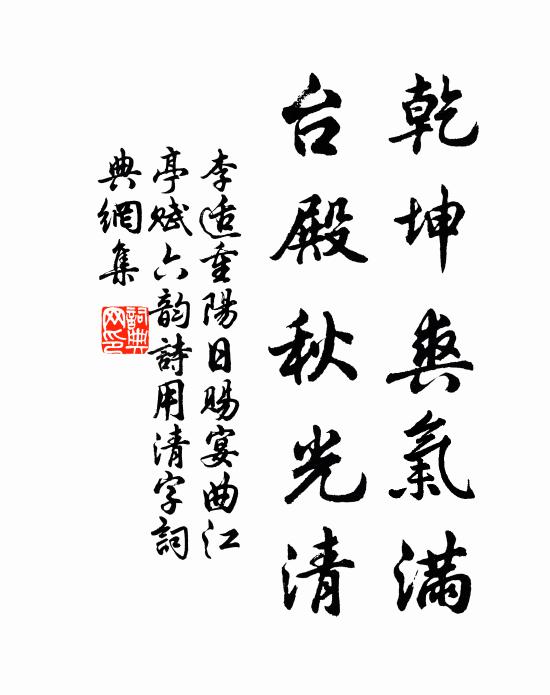 乾坤爽氣滿
台殿秋光清
李适重陽日賜宴曲江
亭賦六韵詩用清字詞
典網集
詞典
网印